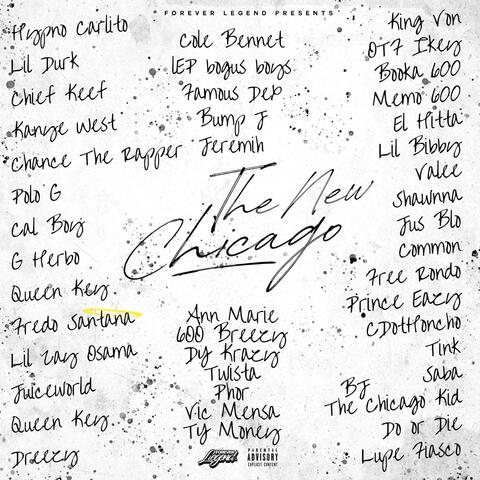 * FOREVER LEGEND PRESENTS *
Hypno Carlito
Lil Durk
Chief Keef
Kanye West
Chance The Rapper
Polo G
Cal Boy
G Herbo
Queen Key
Fredo Santana
Lil Zay Osama
Juiceworld
Queen Key
Dreezy
Cole Bennet
LEP bogus boys
Famous Dex
Bump J
Jeremih
The New
Chicago
Ann Marie
600 Breezy
Dy Krazy
Twista
Phor
Vic Mensa
Ty Money
FOREVER
Legend
PARENTAL
ADVISORY
EXPLICIT CONTENT
King Von
OTF Ikey
Booka 600
Memo 600
El Hitta
Lil Bibby
Valee
Shawnna
Jus Blo
Common
Free Rondo
Prince Eazy
CDotHoncho
Tink
Saba
BJ
The Chicago Kid
Do or Die
Lupe Fiasco